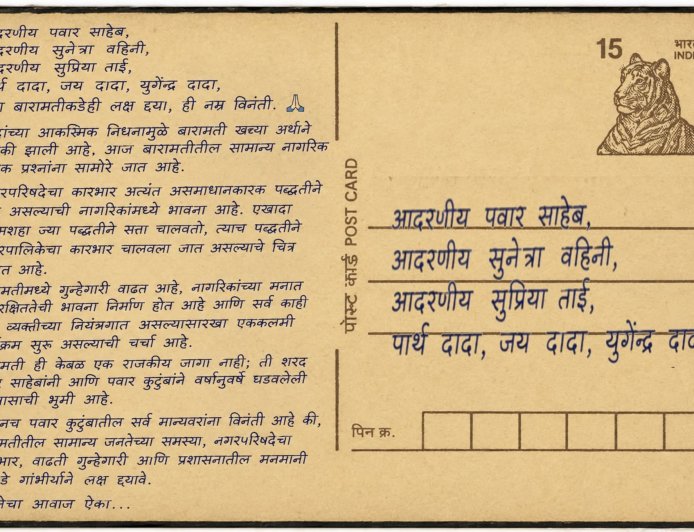 दरणीय पवार साहेब,
दरणीय सुनेत्रा वहिनी,
दरणीय सुप्रिया ताई,
र्थ दादा, जय दादा, युगेंद्र दादा,
ा बारामतीकडेही लक्ष द्दया, ही नम्र विनंती. 🙏
दांच्या आकस्मिक निधनामुळे बारामती खऱ्या अर्थाने
की झाली आहे, आज बारामतीतील सामान्य नागरिक
क प्रश्नांना सामोरे जात आहे.
रपरिषदेचा कारभार अत्यंत असमाधानकारक पद्धतीने
असल्याची नागरिकांमध्ये भावना आहे. एखादा
मशहा ज्या पद्धतीने सत्ता चालवतो, त्याच पद्धतीने
रपालिकेचा कारभार चालवला जात असल्याचे चित्र
त आहे.
मतीमध्ये गुन्हेगारी वाढत आहे, नागरिकांच्या मनात
रक्षिततेची भावना निर्माण होत आहे आणि सर्व काही
व्यक्तीच्या नियंत्रणात असल्यासारखा एककलमी
क्रम सुरू असल्याची चर्चा आहे.
मती ही केबळ एक राजकीय जागा नाही; ती शरद
साहेबांनी आणि पवार कुटुंबांने वर्षानुवर्षे घडवलेली
ासाची भुमी आहे.
नच पवार कुटुंबातील सर्व मान्यवरांना विनंती आहे की,
मतीतील सामान्य जनतेच्या समस्या, नगरपरिषदेचा
भार, वाढती गुन्हेगारी आणि प्रशासनातील मनमानी
डे गांभीर्याने लक्ष द्दयावे.
तेचा आवाज ऐका...
15
भारत
INDIA
पोस्ट कार्ड POST CARD
आदरणीय पवार साहेब,
आदरणीय सुनेत्रा वहिनी,
आदरणीय सुप्रिया ताई,
पार्थ दादा, जय दादा, युगेंद्र दाद
पिन क्र.